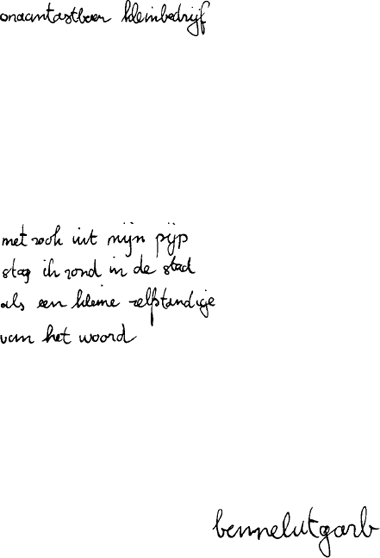 onaantastbaar kleinbedrijf
met rook uit mijn pijp
stap ik rond in de stad
als een kleine zelfstandige
van het woord
bennelutgarb